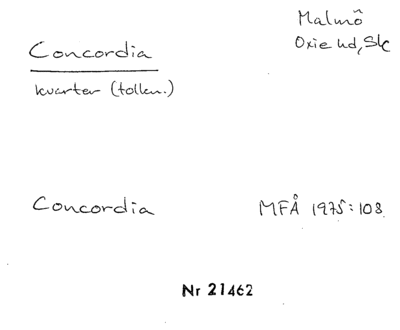 Malmö
Oxie hd, Sk
Concordia
kvarter (tolkn.)
Concordia MFÅ 1975:108
Nr 21462